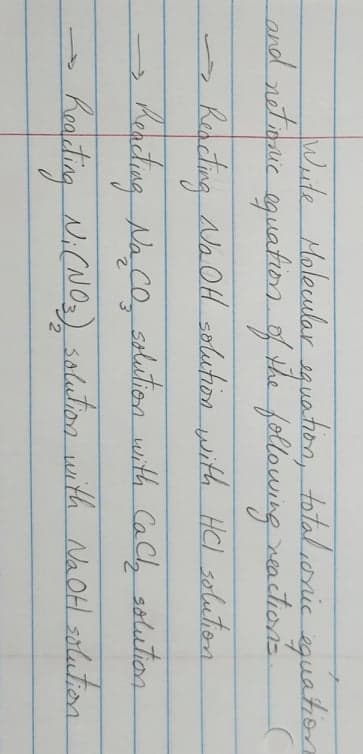 Write Molecular equation, total ionic equation
and netionic equation of the following reactions.
→ Reacting NaOH solution with HCl solution
→ Reacting Na₂CO₃ solution with CaCl₂ solution
→ Reacting Ni(NO₃)₂ solution with NaOH solution